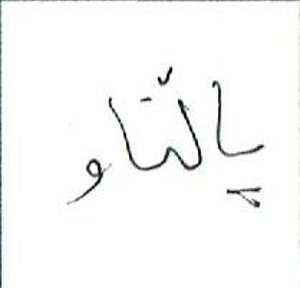 پالتّاو